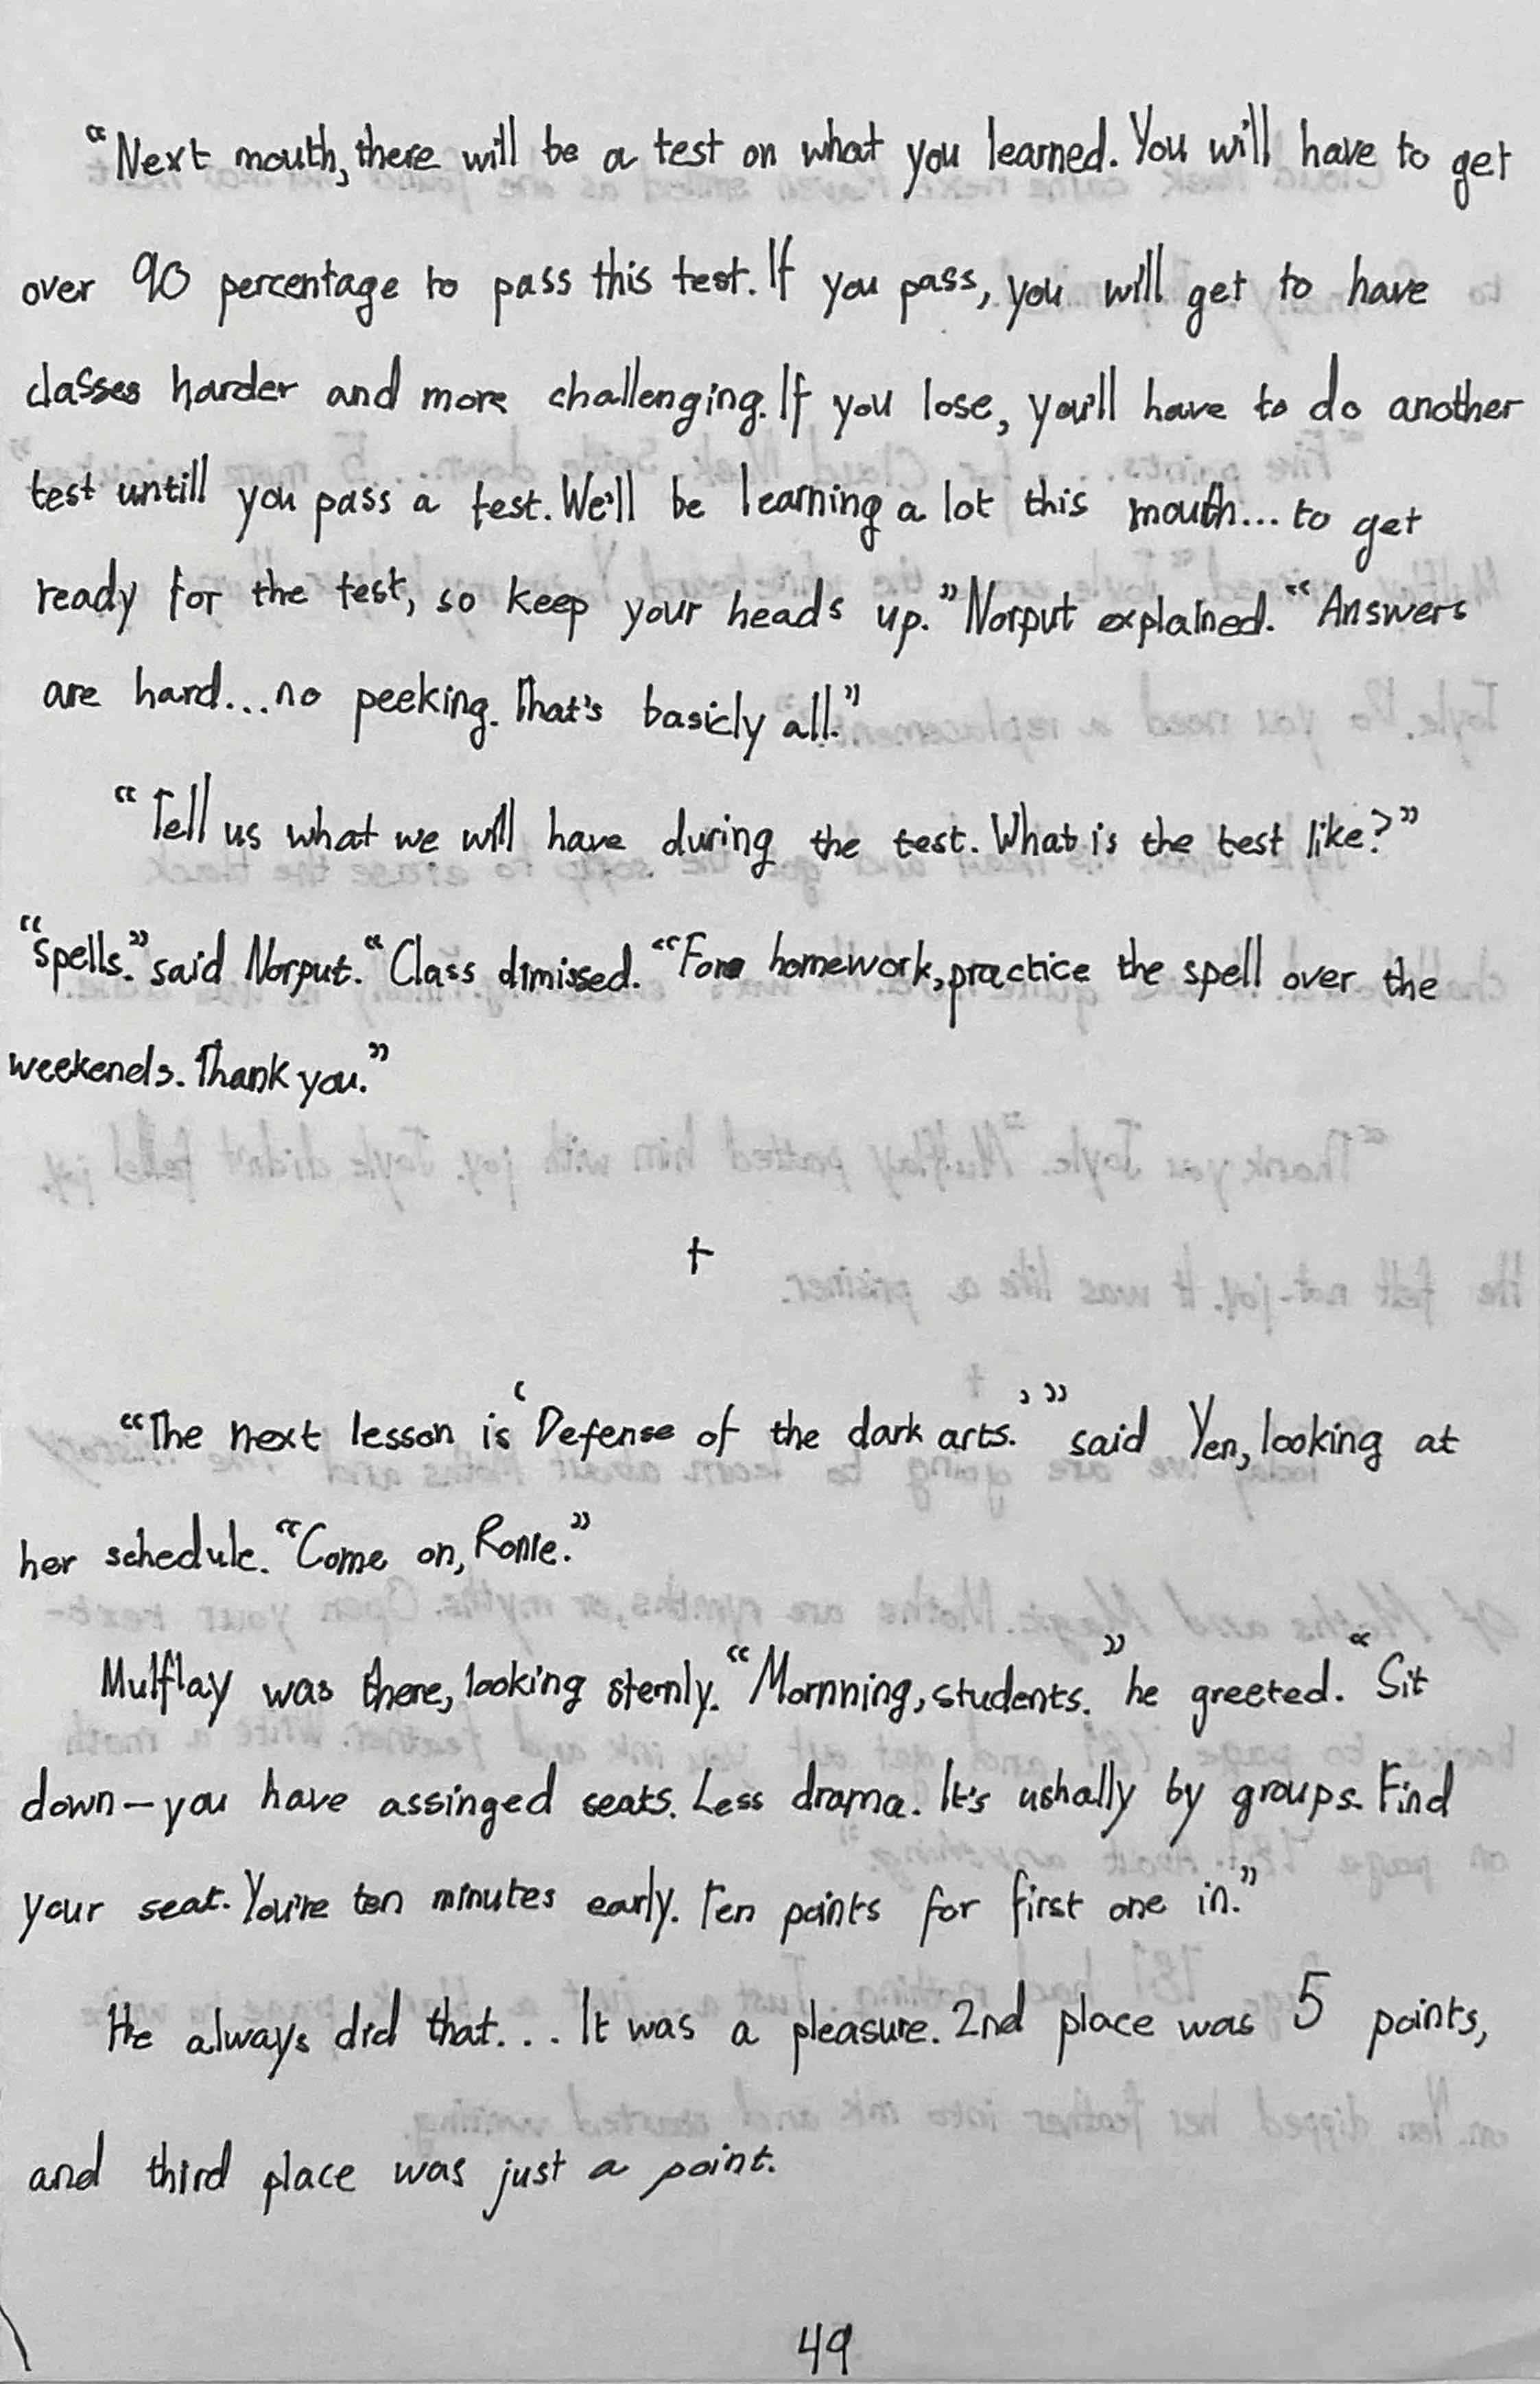 “Next mouth, there will be a test on what you learned. You will have to get
over 90 percentage to pass this test. If you pass, you will get to have
classes harder and more challenging. If you lose, you'll have to do another
test untill you pass a test. We'll be learning a lot this mouth... to get
ready for the test, so keep your heads up.” Norput explained. “Answers
are hard...no peeking. That's basicly all.”
“Tell us what we will have during the test. What is the test like?”
“spells.” said Norput. “Class dimissed. “For homework, practice the spell over the
weekends. Thank you.”
†
“The next lesson is ‘Defense of the dark arts.’” said Yen, looking at
her schedule. “Come on, Ronie.”
Mulflay was there, looking sternly. “Mornning, students.” he greeted. “Sit
down—you have assinged seats. Less drama. It's ushally by groups. Find
your seat. You're ten minutes early. Ten points for first one in.”
He always did that... It was a pleasure. 2nd place was 5 points,
and third place was just a point.
49